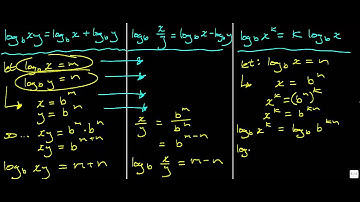 log_b xy = log_b x + log_b y
let log_b x = m
log_b y = n
x = b^m
y = b^n
so... xy = b^m · b^n
xy = b^(m+n)
log_b xy = m+n
log_b x/y = log_b x - log_b y
x/y = b^m/b^n
= b^(m-n)
log_b x/y = m-n
log_b x^k = k log_b x
let: log_b x = n
x = b^n
x^k = (b^n)^k
x^k = b^(kn)
log_b x^k = log_b b^(kn)
log